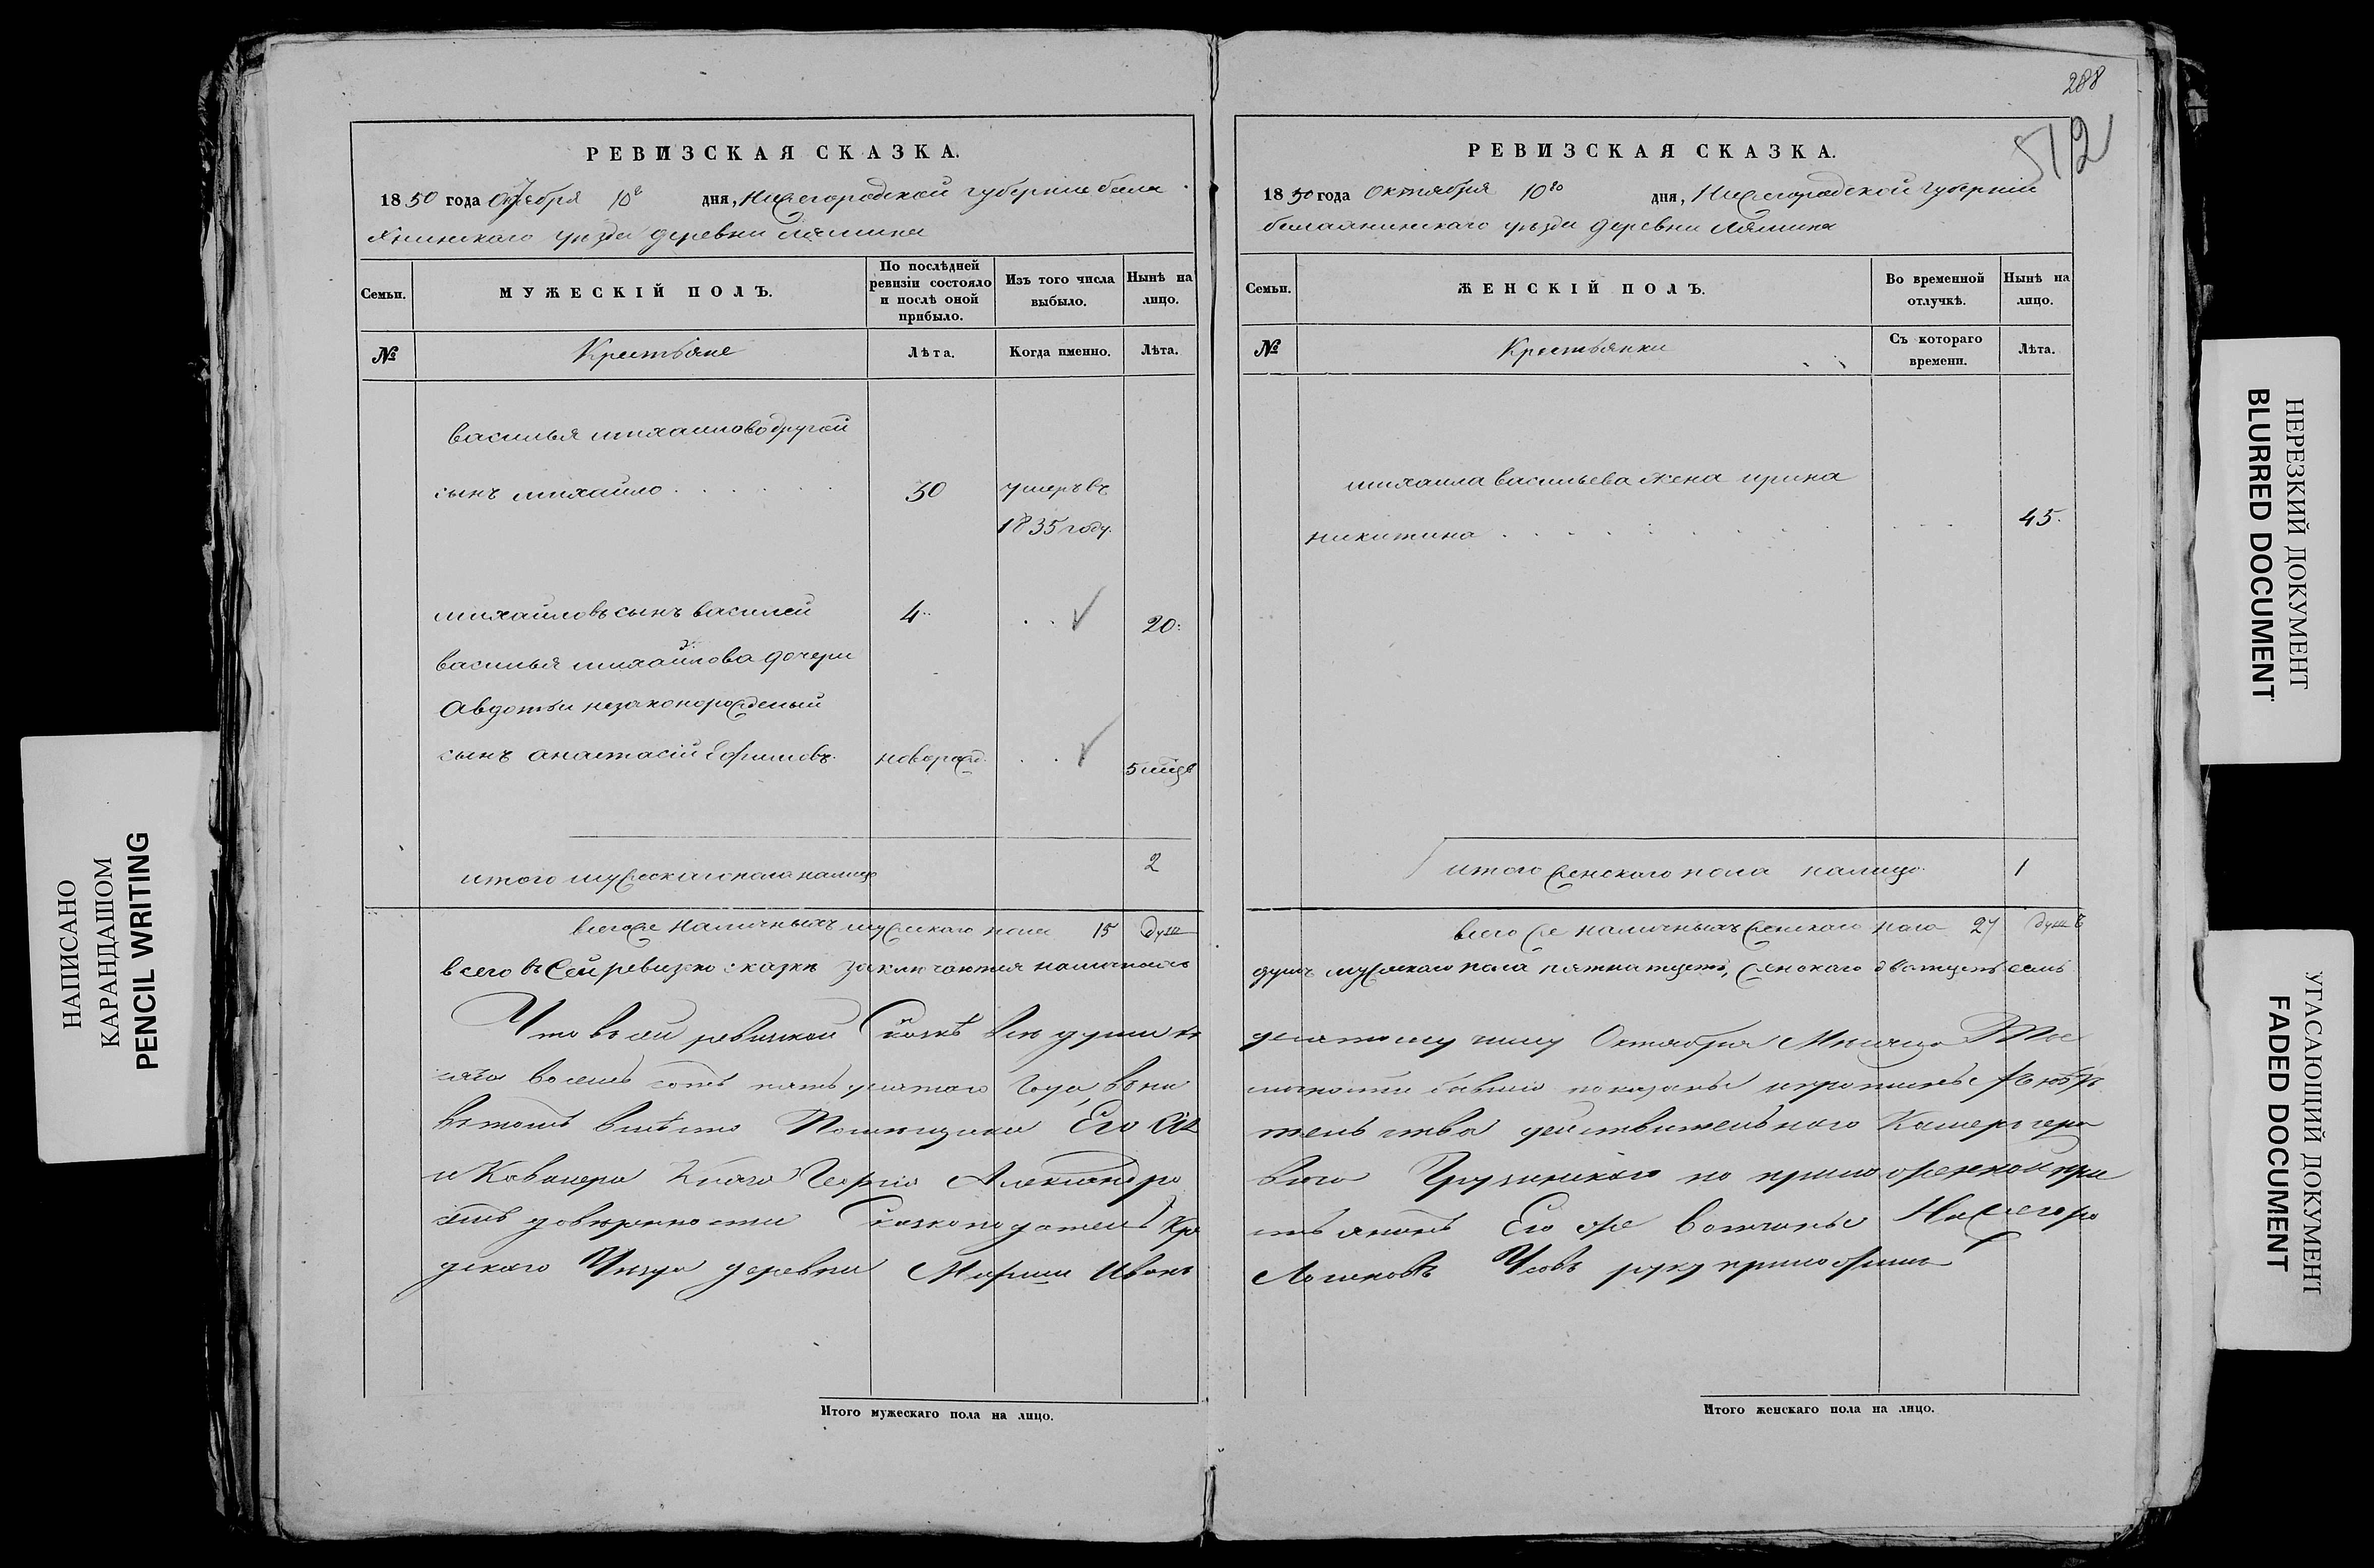 288
512
РЕВИЗСКАЯ СКАЗКА.
1850 года Октября 10го дня, Нижегородской губернии Бала
хнинскаго уѣзда деревни
Семьи.
МУЖЕСКІЙ ПОЛЪ.
По послѣдней ревизіи состояло и послѣ оной прибыло.
Изъ того числа выбыло.
Нынѣ на лицо.
№
Крестьяне
Лѣта.
Когда именно.
Лѣта.
василья михаилова другой
сынъ михайло 30 умеръ въ
1835 году.
михайловъ сынъ василей 4 20
василья михайлова дочери
Авдотьи незаконорожденый
сынъ анастасій Ефимовъ. новорожд. 5 мцов
итого мужескаго пола налицо 2
всего же наличныхъ мужскаго пола 15 душ
всего въ сей ревизско сказкѣ заключаются наличныхъ
Что въ сей ревизской Сказкѣ всѣ души къ
сяча восемь сотъ пятьдесятаго Года, въ
въ томъ вмѣсто Помещика Его
и Кавалера Князя Георгія Александро
довѣренности Сказкоподатель Кре
дскаго Уѣзда деревни Ивана
Итого мужескаго пола на лицо.
РЕВИЗСКАЯ СКАЗКА.
1850 года Октября 10го дня, Нижегородской Губерніи
балахнинскаго уѣзда деревни
Семьи.
ЖЕНСКІЙ ПОЛЪ.
Во временной отлучкѣ.
Нынѣ на лицо.
№
Крестьянки
Съ котораго времени.
Лѣта.
михаила васильева жена ирина
никитина 45.
итого женскаго пола налицо 1
всего же наличныхъ женскаго пола 27 душъ
душъ мужскаго пола пятнатцеть, женскаго дватцеть семь
десятому числу Октября Месяца Ты
показаны
действительнаго Камергера
вича Грузинскаго по приложенной при
стьянъ Его же вотчины Нижегоро
руку приложилъ
Итого женскаго пола на лицо.
НАПИСАНО
КАРАНДАШОМ
PENCIL WRITING
НЕРЕЗКИЙ ДОКУМЕНТ
BLURRED DOCUMENT
УГАСАЮЩИЙ ДОКУМЕНТ
FADED DOCUMENT